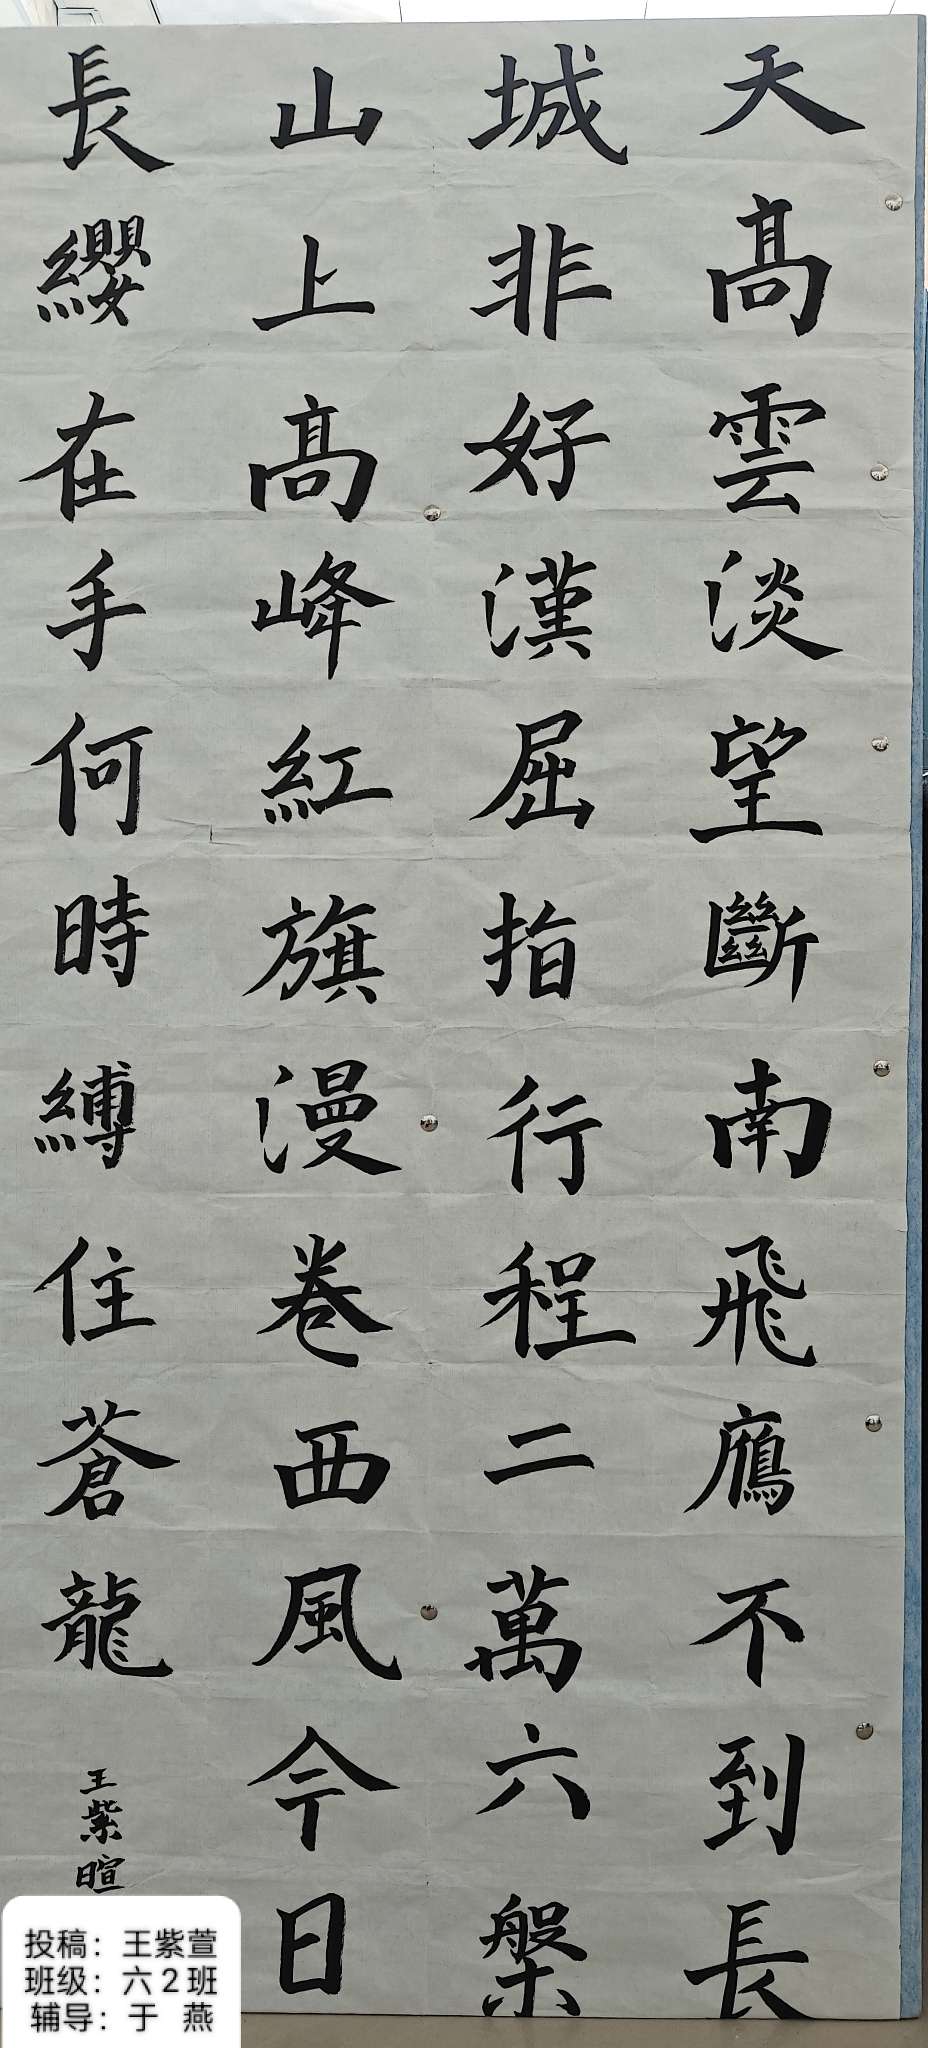 天高雲淡望斷南飛鴈不到長
城非好漢屈指行程二萬六槃
山上高峰紅旗漫卷西風今日
長纓在手何時縛住蒼龍
王紫暄
投稿：王紫萱
班级：六2班
辅导：于 燕